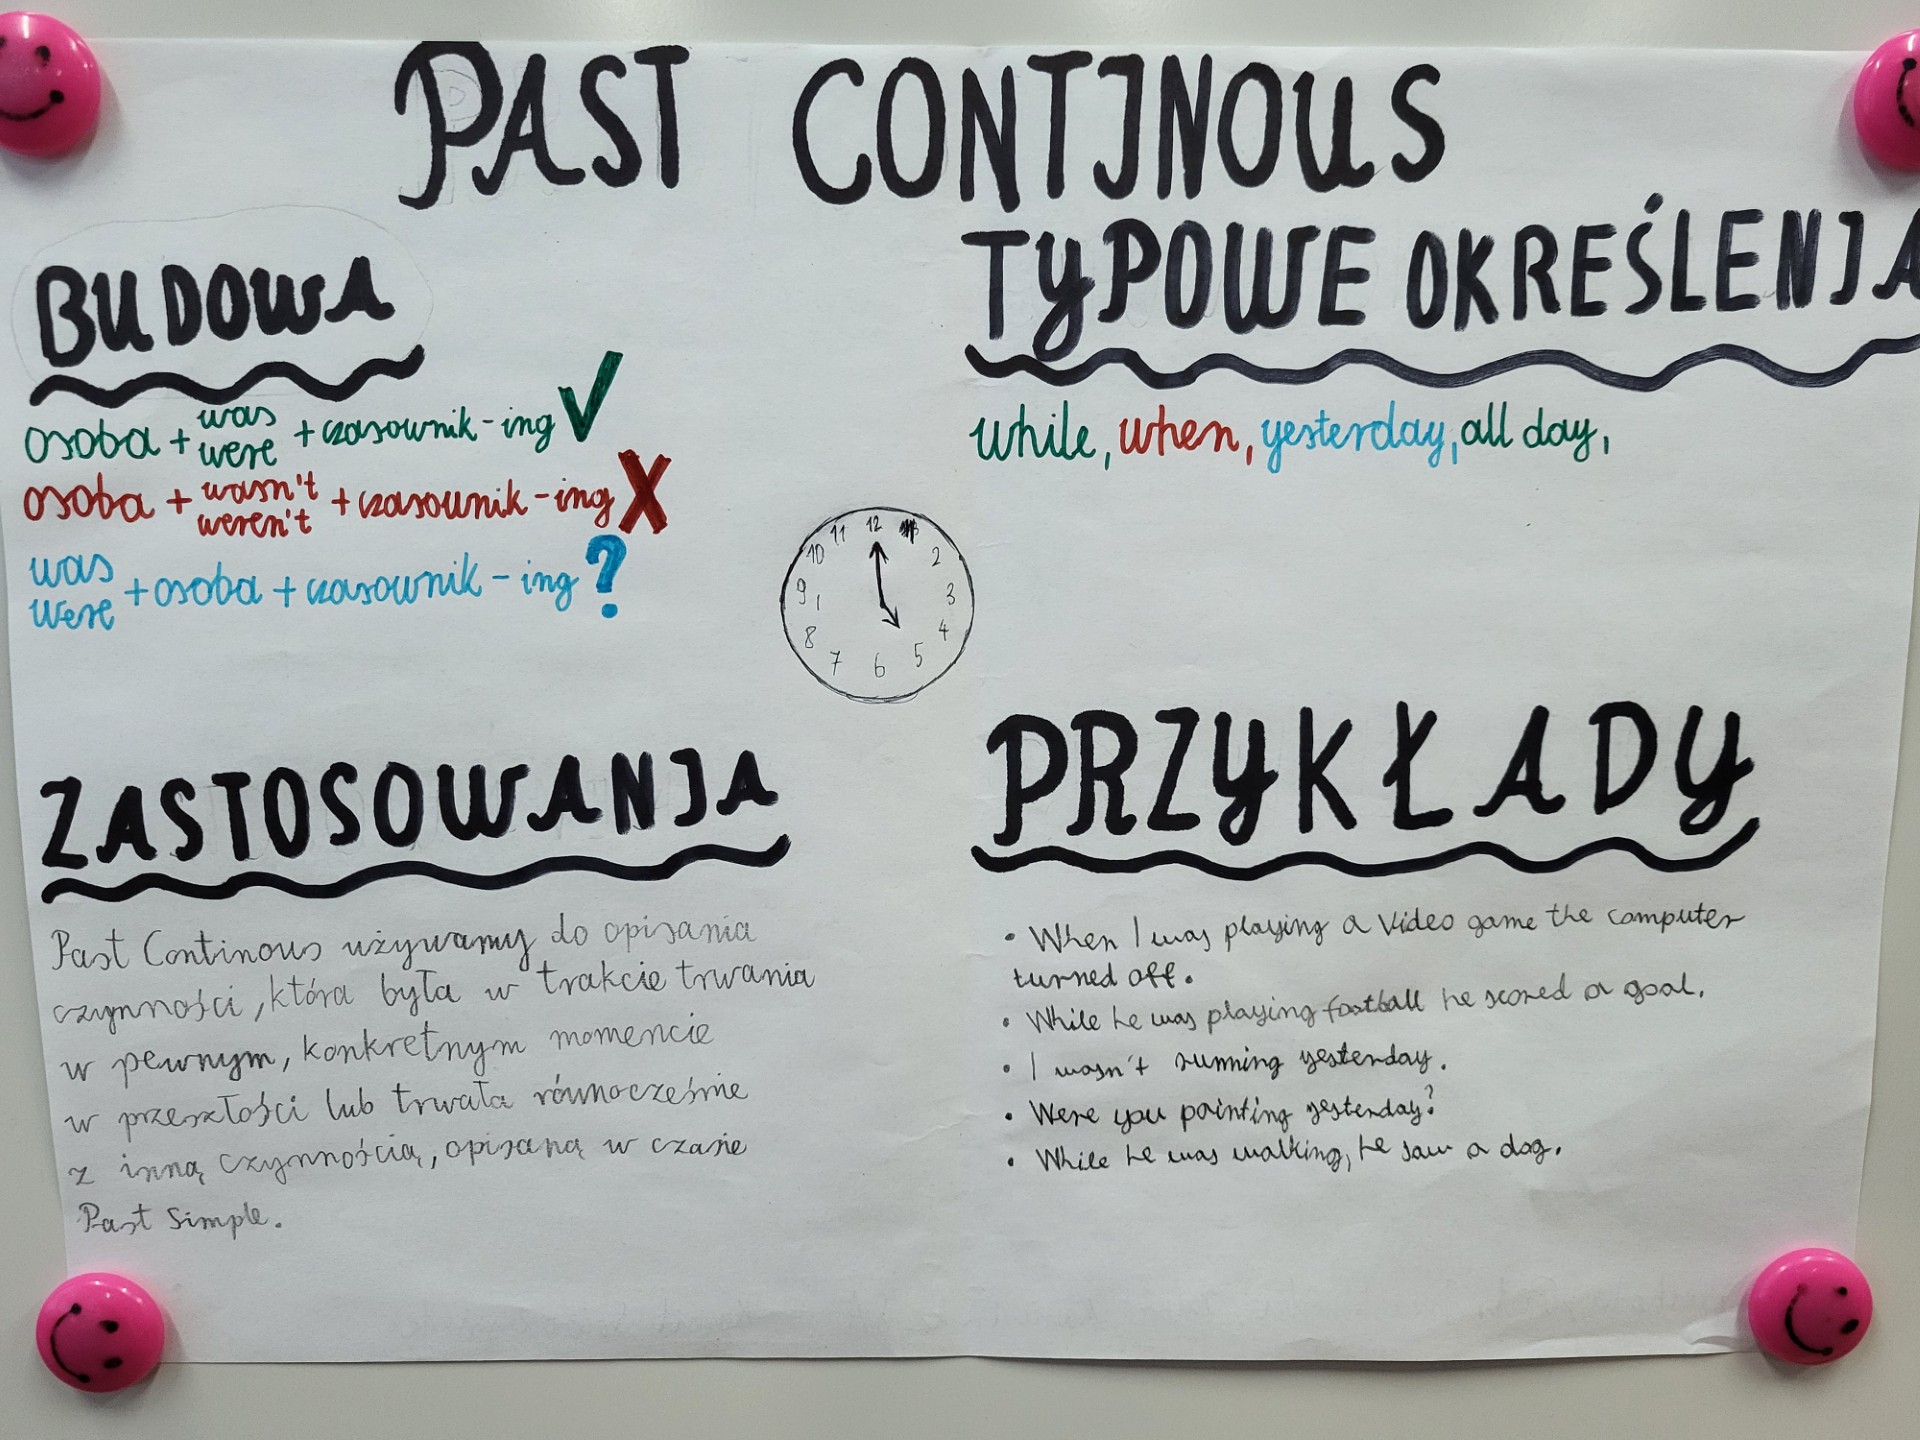 PAST CONTINOUS
BUDOWA
osoba + was were + czasownik - ing ✓
osoba + wasn't weren't + czasownik - ing X
was were + osoba + czasownik - ing ?
TYPOWE OKREŚLENIA
while, when, yesterday, all day,
12
11
2
10
3
9
4
8
5
7
6
ZASTOSOWANIA
Past Continous używamy do opisania
czynności, która była w trakcie trwania
w pewnym, konkretnym momencie
w przeszłości lub trwała równocześnie
z inną czynnością, opisaną w czasie
Past Simple.
PRZYKŁADY
• When I was playing a video game the computer
turned off.
• While he was playing football he scored a goal.
• I wasn't running yesterday.
• Were you painting yesterday?
• While he was walking, he saw a dog.